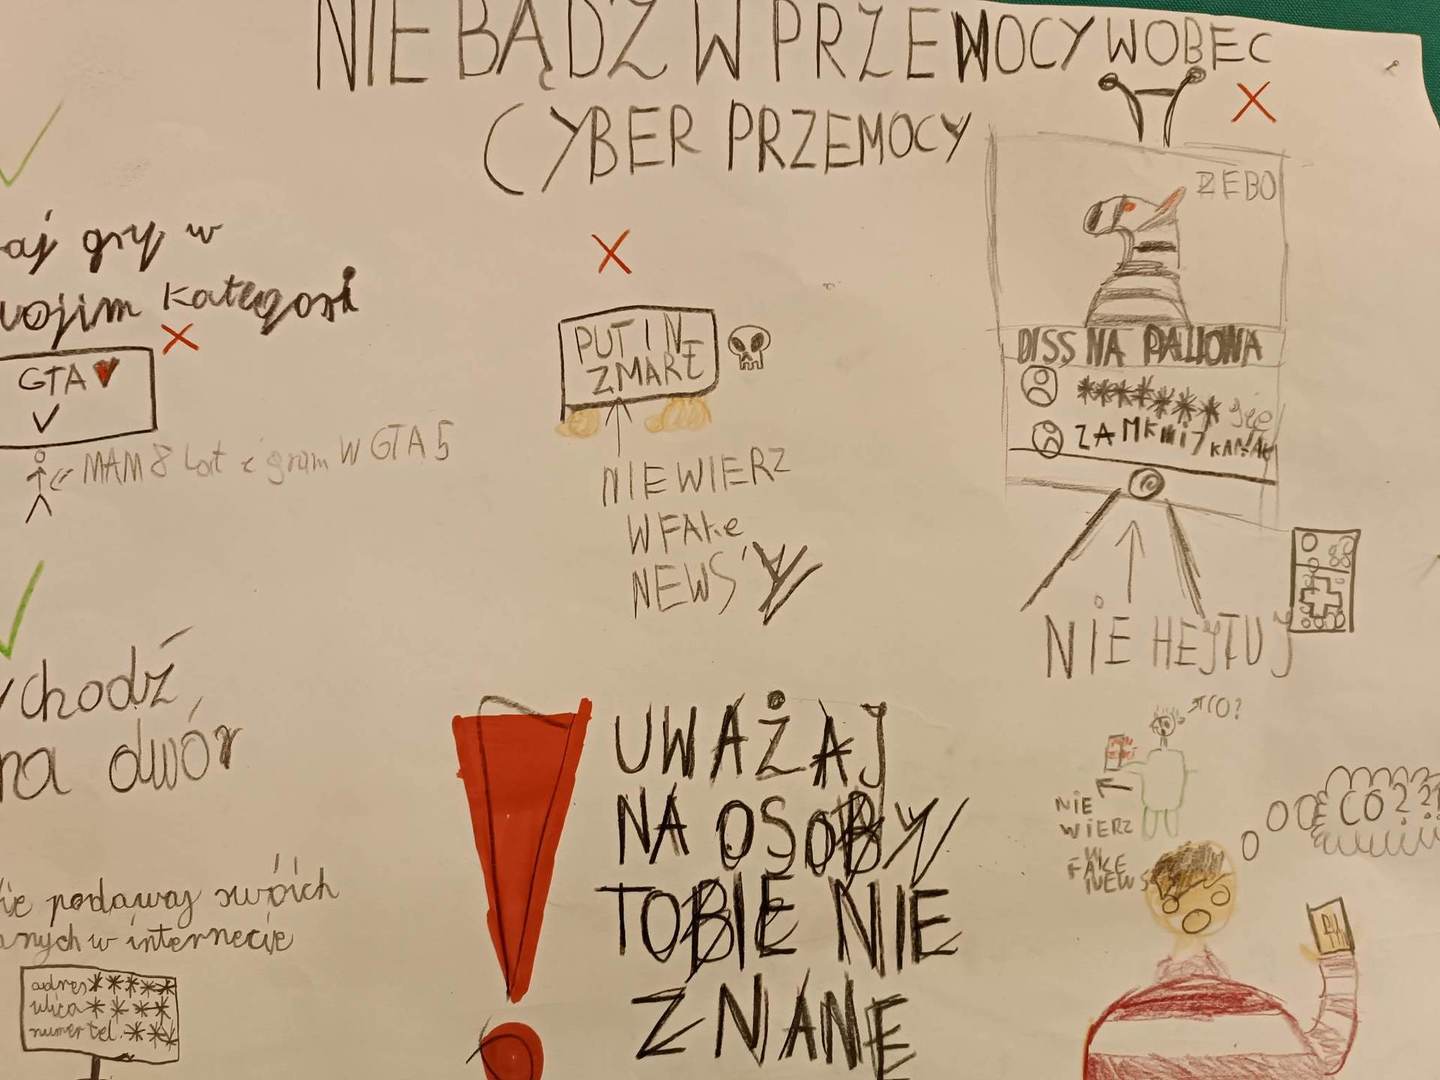 NIE BĄDŹ W PRZEMOCY WOBEC
CYBER PRZEMOCY
aj gry w
wojim kategori
GTA
MAM 8 lat i gram W GTA 5
chodź
na dwór
ie podawaj swóich
anych w internecie
adres*****
ulica****
numer tel.***
PUTIN
ZMARŁ
NIEWIERZ
W FAKe
NEWS'Y
UWAŻAJ
NA OSOBY
TOBIE NIE
ZNANE
ZEBO
DISS NA PALIONA
******* się
ZAMKNIJ KANAŁ
NIE HEJTUJ
CO?
NIE
WIERZ
W
FAKE
NEWS
CO???